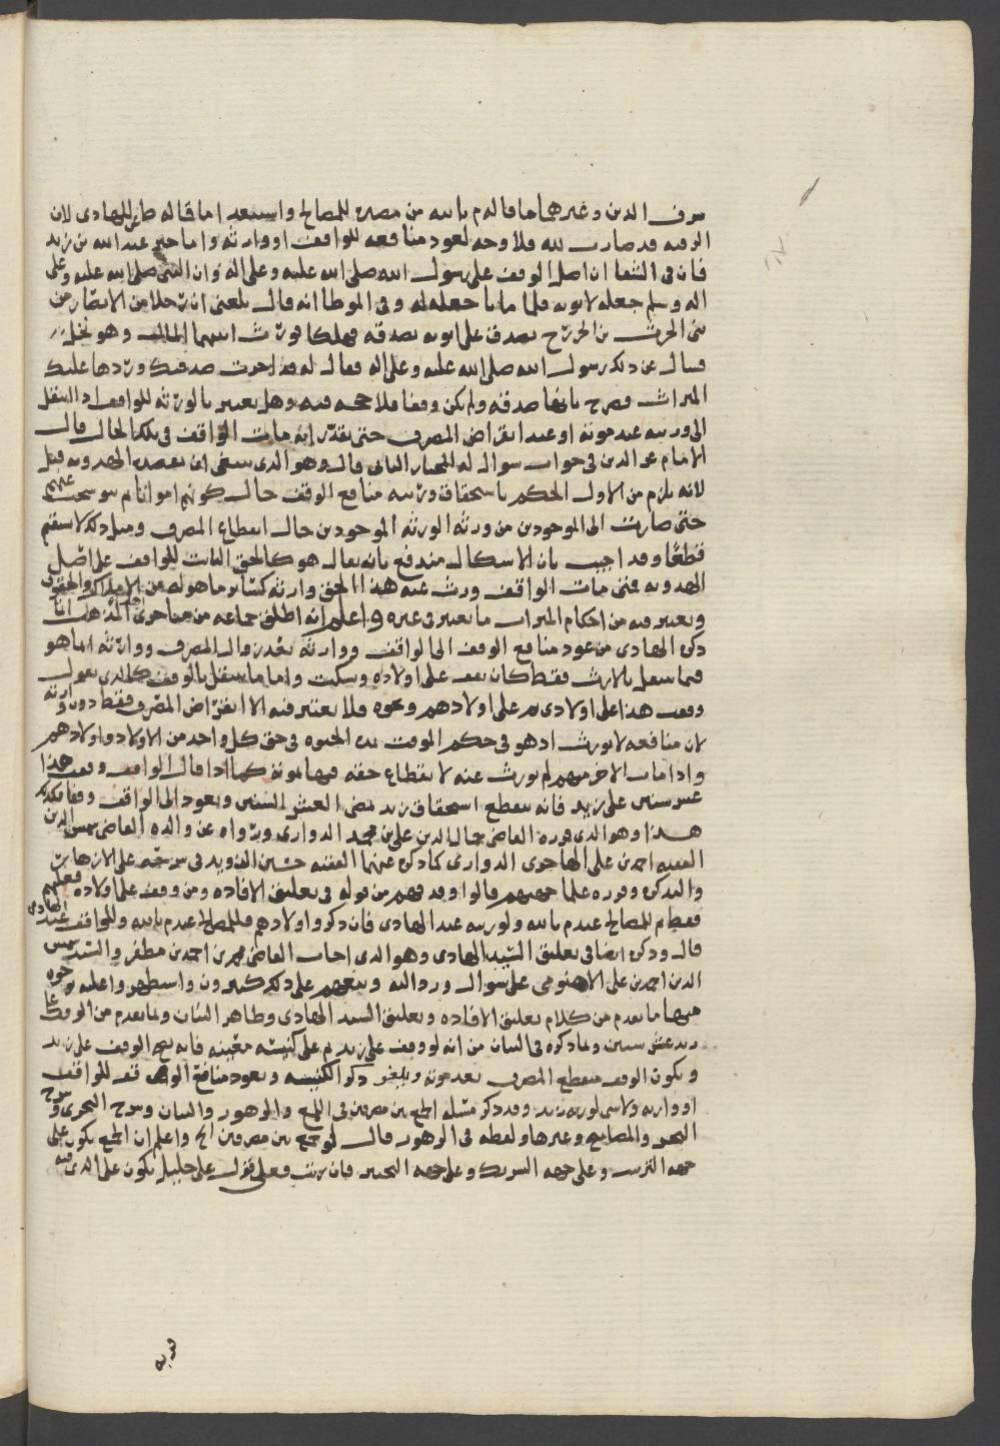 شرف الدين وغيرهما ما قاله م بالله من مصيره للمصالح واستبعد اما قاله ط للهادي لان
الرقبه قد صارت لله فلا وجه لعود منافعه للواقف او وارثه واما خبر عبد الله بن زيد
فان في الشفا ان اصل الوقف على رسول الله صلى الله عليه وعلى اله وان النبي صلى الله عليه وعلى
اله وسلم جعله لابويه فلما ماتا جعله له وفي الموطا انه قال بلغني ان رجلا من الانصار من
بني الحرث بن الخزرج تصدق على ابويه بصدقه فهلكا فورث ابنهما المال وهو نخل
فسال عن ذلك رسول الله صلى الله عليه وعلى اله فقال له قد اجرت صدقتك وردها عليك
الميراث فصرح بانها صدقه ولم يكن وقفا فلا حجه فيه وهل يعتبر بالورثه للواقف اذا انتقل
الى ورثته عند موته او عند انقراض المصرف حتى يقدر انه مات الواقف في تلك الحال قال
الامام عز الدين في جواب سوال له المختار الثاني قال وهو الذي ينبغي ان يقصده الهدويه قيل
لانه يلزم من الاول الحكم باستحقاق ورثته منافع الوقف حال كونهم امواتا ثم
حتى صارت الى الموجودين من ورثة الورثه الموجودين حال انقطاع المصرف ومثل ذلك لا يستقيم
قطعا وقد اجيب بان الاشكال مندفع بانه يقال هو كالحق الثابت للواقف على اصل
الهدويه فمتى مات الواقف ورث عنه هذا الحق وارثه كسائر ما هو له من الاملاك والحقوق
ويعتبر فيه من احكام الميراث ما يعتبر في غيره واعلم انه اطلق جماعه من متاخري المذهب ان
ذكره الهادي من عود منافع الوقف الى الواقف ووارثه بعد زوال المصرف ووارثه انما هو
فيما ينتقل بالارث فقط كان يقف على اولاده وسكت واما ما ينتقل بالوقف كالذي يقول
وقفت هذا على اولادي ثم على اولادهم ونحوه فلا يعتبر فيه الا انقراض المصرف فقط دون وارثه
لان منافعه لا تورث اذ هو في حكم الموقت بمدة الحيوه في حق كل واحد من الاولاد واولادهم
واذا مات الاخر منهم لم تورث عنه لانقطاع حقه فيها بموته كما اذا قال الواقف وقفت هذا
عشر سنين على زيد فانه ينقطع استحقاق زيد بمضي العشر السنين ويعود الى الواقف وقفا فكذلك
هذا وهو الذي قرره القاضي جمال الدين علي بن محمد الدواري ورواه عن والده القاضي شمس الدين
الفقيه احمد بن علي الدواري كما ذكره عنهما الفقيه حسين الذويد في شرحه على الازهار
والتذكره وقرره علما قالوا وقد فهم من قوله في تعليق الافاده ومن وقف على اولاده فعليهم
فقط ثم للمصالح عند م بالله ولورثته عند الهادي فان ذكر واولادهم فللمصالح عند م بالله وللواقف عند الهادي
قال وذكره ايضا في تعليق السيد الهادي وهو الذي اجاب القاضي محمد بن احمد بن مظفر والسيد شمس
الدين احمد بن علي الاهنومي على سوال ورد اليه وتبعهم على ذلك كثيرون واستظهروا عليه بوجوه
منها ما تقدم من كلام تعليق الافاده وتعليق السيد الهادي وظاهر البيان وبما تقدم من الوقف على
زيد عشر سنين وبما ذكره في البيان من انه لو وقف على زيد ثم على كنيسه معينه فانه يصح الوقف على زيد
ويكون الوقف منقطع المصرف بعد موته ويلغو ذكر الكنيسه وتعود منافع الوقف للواقف
او وارثه ولا شي لورثة زيد وقد ذكر مسئلة الجمع بين مصرفين في اللمع والزهور والبيان وشرح البحر وشرح
البحر والمصابيح وغيرها ولفظه في الزهور قال لو جمع بين مصرفين الخ واعلم ان الجمع يكون على
جهة الترتيب وعلى جهة التشريك وعلى جهة التخيير فان رتب فعلى قول علي خليل يكون على الذي فيه
قربه